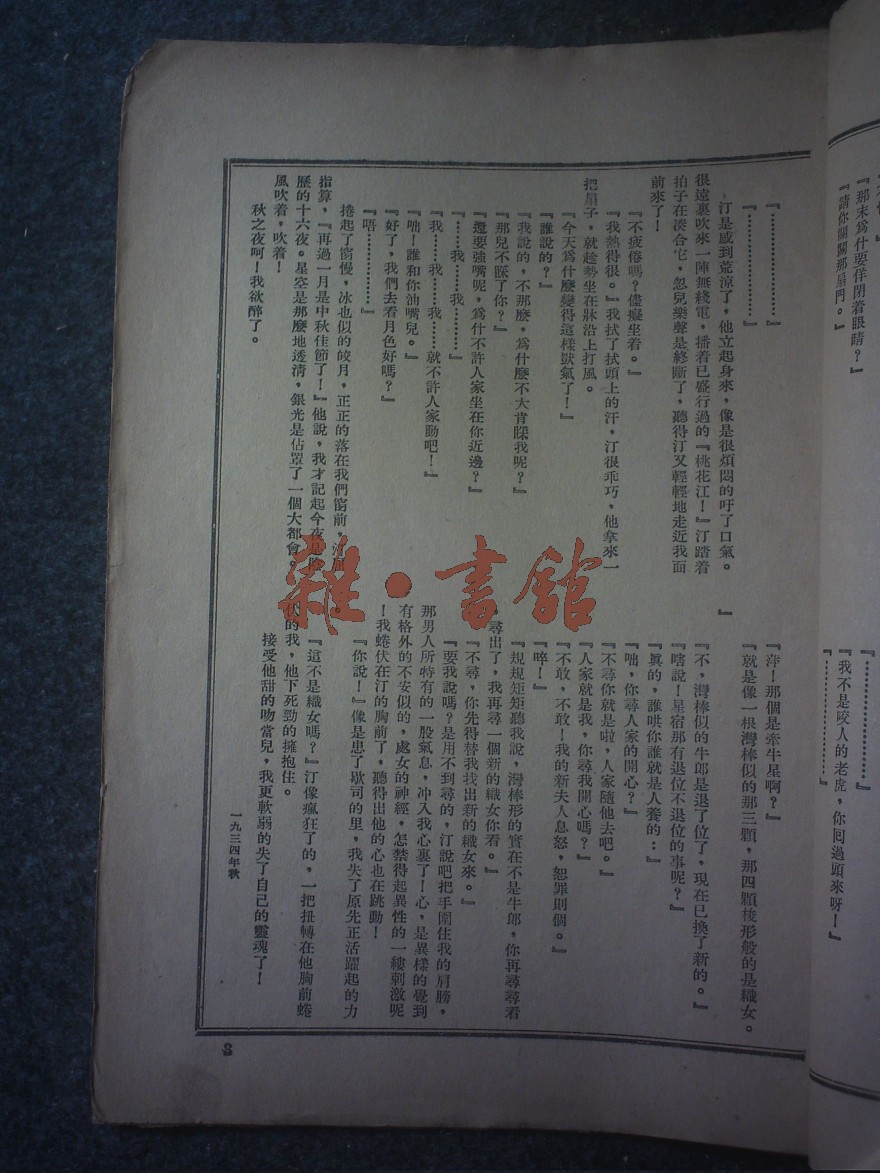 『那末爲什要佯閉着眼睛？
『請你關關那扇門。』
『…………………』
『我不是咬人的老虎，你回過頭來呀！』
『…………………』
『…………………』
『…………………』
汀是感到荒涼了，他立起身來，像是很煩悶的吁了口氣。
很遠裏吹來一陣無綫電，播着已盛行過的『桃花江！』汀踏着
拍子在湊合它，忽兒樂聲是終斷了，聽得汀又輕輕地走近我面
前來了！
『不疲倦嗎？儘癡坐着。』
『我熱得很。』我拭了拭頭上的汗，汀很乖巧，他拿來一
把扇子，就趁勢坐在牀沿上打風。
『今天爲什麼變得這樣獃氣了！』
『誰說的？』
『我說的，不那麼，爲什麼不大肯睬我呢？』
『那兒不睬了你？』
『還要強嘴呢，爲什不許人家坐在你近邊？』
『……我……我………』
『我……我……我………就不許人家動吧！』
『咄！誰和你油嘴兒。』
『好了，我們去看月色好嗎？』
『唔………………』
捲起了窗慢，冰也似的皎月，正正的落在我們窗前，汀
指算，『再過一月是中秋佳節了！』他說，我才記起今夜是陰
歷的十六夜。星空是那麼地透清，銀光是佔罩了一個大都會。
風吹着，吹着！
秋之夜呵！我欲醉了。
』
『萍！那個是牽牛星啊？』
『就是像一根灣棒似的那三顆，那四顆梭形般的是織女。
『不，灣棒似的牛郎是退了位了，現在已換了新的。』
『瞎說！星宿那有退位不退位的事呢？』
『眞的，誰哄你誰就是人養的：』
『咄，你尋人家的開心？』
『不尋你就是啦，人家隨他去吧。』
『人家就是我，你尋我開心嗎？』
『不敢，不敢！我的新夫人息怒，恕罪則個。』
『啐！』
『規規矩矩聽我說，灣棒形的實在不是牛郎，你再尋尋看
尋出了，我再尋一個新的織女你看。』
『不尋，你先得替我找出新的織女來。』
『要我說嗎？是用不到尋的，汀說吧把手圍住我的肩膀，
那男人所特有的一股氣息，冲入我心裏了！心，是異樣的覺到
有格外的不安似的，處女的神經，怎禁得起異性的一縷刺激呢
！我蜷伏在汀的胸前了，聽得出他的心也在跳動！
『你說！』像是患了歇司的里，我失了原先正活躍起的力
。
『這不是織女嗎？』汀像瘋狂了的，一把扭轉在他胸前蜷
伏的我，他下死勁的擁抱住。
接受他甜的吻當兒，我更軟弱的失了自己的靈魂了！
一九三四年秋
8
雜·書館